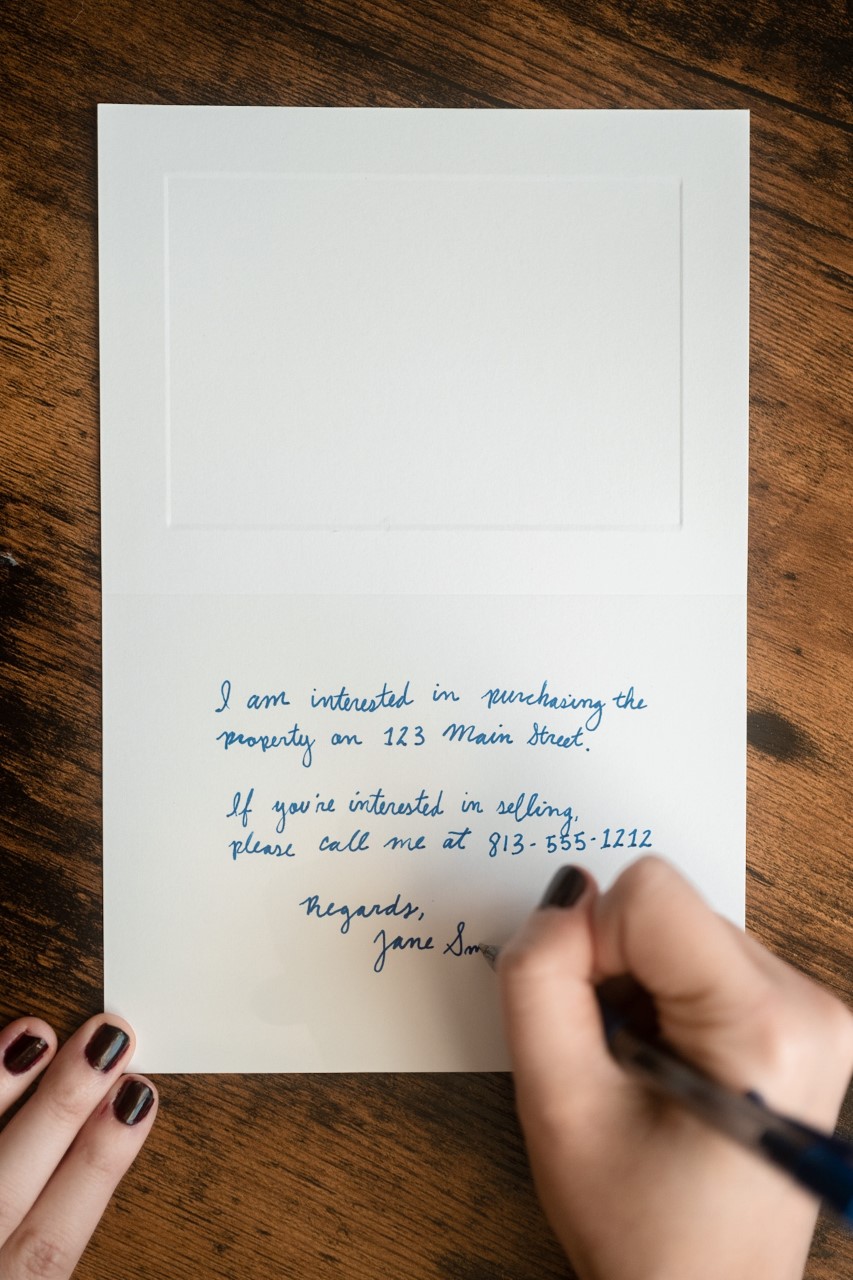 I am interested in purchasing the
property on 123 Main Street.
If you're interested in selling,
please call me at 813-555-1212
Regards,
Jane Sm